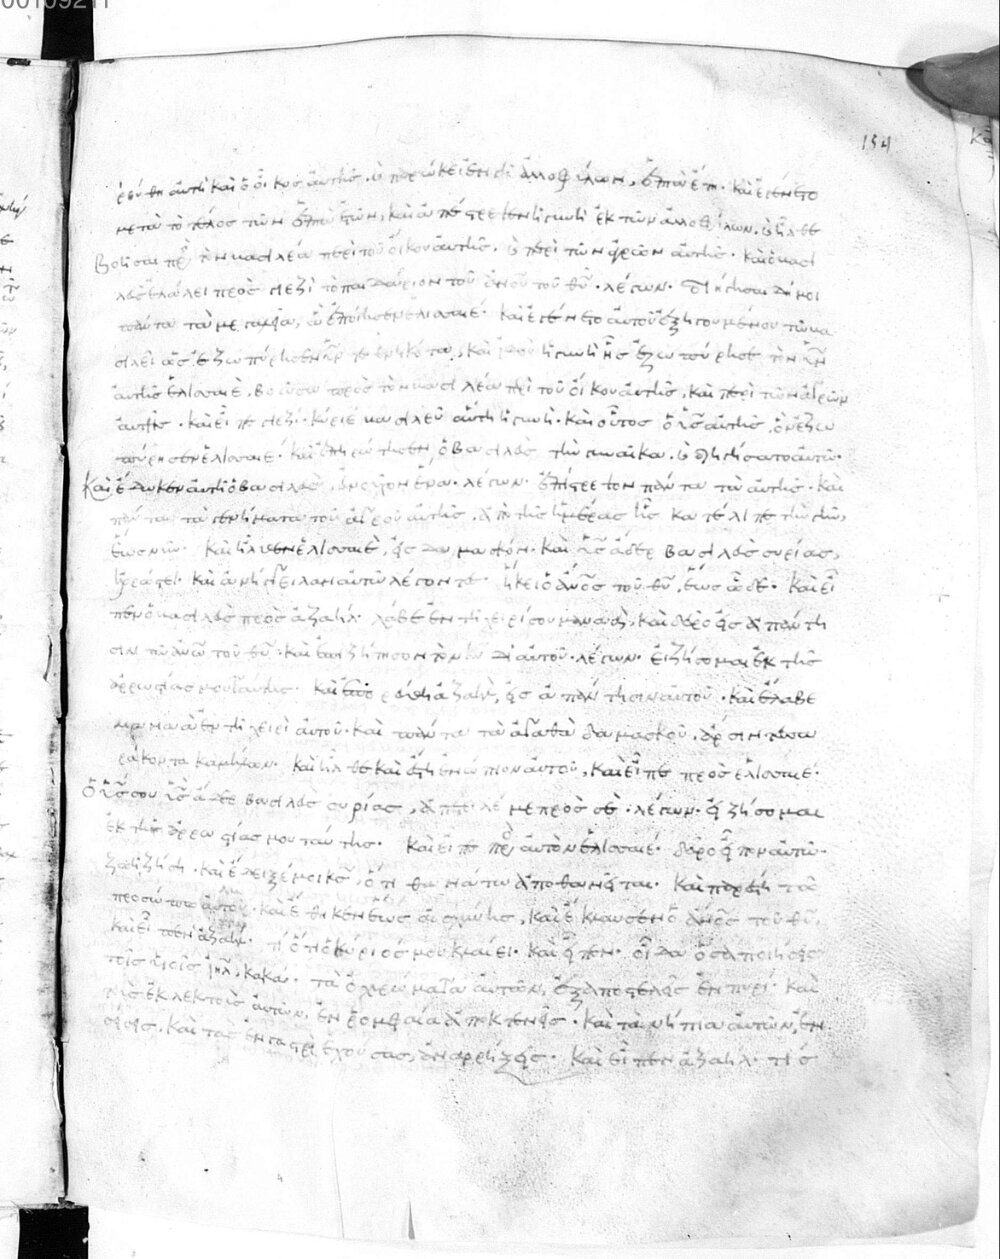 ρεύθη αὐτὴ καὶ ὁ οἶκος αὐτῆς, καὶ παρώκει ἐν γῇ ἀλλοφύλων, ἑπτὰ ἔτη. καὶ ἐγένετο
μετὰ τὸ τέλος τῶν ἑπτὰ ἐτῶν, καὶ ἀνέστρεψεν ἡ γυνὴ ἐκ τῶν ἀλλοφύλων, καὶ ἦλθε
βοῆσαι πρὸς τὸν βασιλέα περὶ τοῦ οἴκου αὐτῆς, καὶ περὶ τῶν ἀγρῶν αὐτῆς. καὶ ὁ βασι
λεὺς ἐλάλει πρὸς γιεζὶ τὸ παιδάριον τοῦ ἀνοῦ τοῦ θῦ. λέγων. διήγησαι δή μοι
πάντα τὰ μεγαλεῖα, ἃ ἐποίησεν ἐλισσαιέ. καὶ ἐγένετο αὐτοῦ ἐξηγουμένου τῶ βα
σιλεῖ ὡς ἐζωπύρησεν υν τεθνηκότα, καὶ ἰδοὺ ἡ γυνὴ ἧς ἐζωπύρησε τὸν υν
αὐτῆς ἐλισσαιέ, βοῶσα πρὸς τὸν βασιλέα περὶ τοῦ οἴκου αὐτῆς, καὶ περὶ τῶν ἀγρῶν
αὐτῆς. καὶ εἶπε γιεζί. κύριε βασιλεῦ αὕτη ἡ γυνή. καὶ οὗτος ὁ υς αὐτῆς, ὃν ἐζω
πύρησεν ἐλισσαιέ. καὶ ἐπηρώτησεν ὁ βασιλεὺς τὴν γυναῖκα. καὶ διηγήσατο αὐτῶ.
καὶ ἔδωκεν αὐτῇ ὁ βασιλεὺς, εὐνοῦχον ἕνα. λέγων. ἐπίστρεψον πάντα τὰ αὐτῆς. καὶ
πάντα τὰ γεννήματα τοῦ ἀγροῦ αὐτῆς, ἀπὸ τῆς ἡμέρας ἧς κατέλιπε τὴν γῆν,
ἕως νῦν. καὶ ἦλθεν ἐλισσαιὲ, εἰς δαμασκόν. καὶ υς ἄδερ βασιλεὺς συρίας,
ἠρρώστει. καὶ ἀνήγγειλαν αὐτῶ λέγοντες. ἥκει ὁ ἀνος τοῦ θῦ, ἕως ὧδε. καὶ εἶ
πεν ὁ βασιλεὺς πρὸς ἀζαήλ. λάβε ἐν τῇ χειρί σου μαναὰ, καὶ δεῦρο εἰς ἀπάντη
σιν τῶ ἀνω τοῦ θῦ. καὶ ἐπιζήτησον τὸν κν δι' αὐτοῦ. λέγων. εἰ ζήσομαι ἐκ τῆς
ἀρρωστίας μου ταύτης. καὶ ἐπορεύθη ἀζαὴλ, εἰς ἀπάντησιν αὐτοῦ. καὶ ἔλαβε
μαναὰ ἐν τῇ χειρὶ αὐτοῦ. καὶ πάντα τὰ ἀγαθὰ δαμασκοῦ, ἄρσιν τεσσα
ράκοντα καμήλων. καὶ ἦλθε καὶ ἔστη ἐνώπιον αὐτοῦ, καὶ εἶπε πρὸς ἐλισσαιέ.
ὁ υς σου υς ἄδερ βασιλεὺς συρίας, ἀπέσταλέ με πρὸς σὲ. λέγων. εἰ ζήσομαι
ἐκ τῆς ἀρρωστίας μου ταύτης. καὶ εἶπε πρὸς αὐτὸν ἐλισσαιέ. δεῦρο εἶπον αὐτῶ.
ζωῇ ζήσῃ. καὶ ἔδειξέ μοι κς, ὅτι θανάτω ἀποθανεῖται. καὶ παρέστη τῶ
προσώπω αὐτοῦ. καὶ ἔθηκεν ἕως αἰσχύνης, καὶ ἔκλαυσεν ὁ ἀνος τοῦ θῦ.
καὶ εἶπεν ἀζαήλ. τί ὅτι ὁ κύριός μου κλαίει. καὶ εἶπεν. οἶδα ὅσα ποιήσεις
τοῖς υἱοῖς ιηλ κακά. τὰ ὀχυρώματα αὐτῶν, ἐξαποστελεῖς ἐν πυρί. καὶ
τοὺς ἐκλεκτοὺς αὐτῶν, ἐν ῥομφαία ἀποκτενεῖς. καὶ τὰ νήπια αὐτῶν, ἐν
σείσεις. καὶ τὰς ἐν γαστρὶ ἐχούσας, ἀναρρήξεις. καὶ εἶπεν ἀζαήλ. τίς